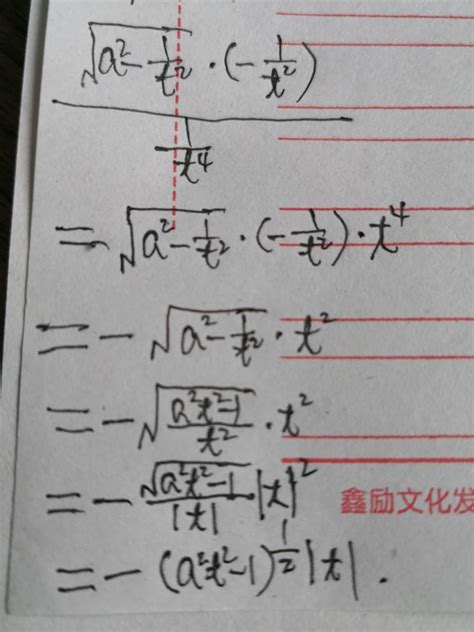 √(a²-1/t²)·(-1/t²)
1/t⁴
=√(a²-1/t²)·(-1/t²)·t⁴
=-√(a²-1/t²)·t²
=-√((a²t²-1)/t²)·t²
=-√(a²t²-1)/|t| |t|²
鑫励文化发
=-(a²t²-1)^(1/2)|t|.